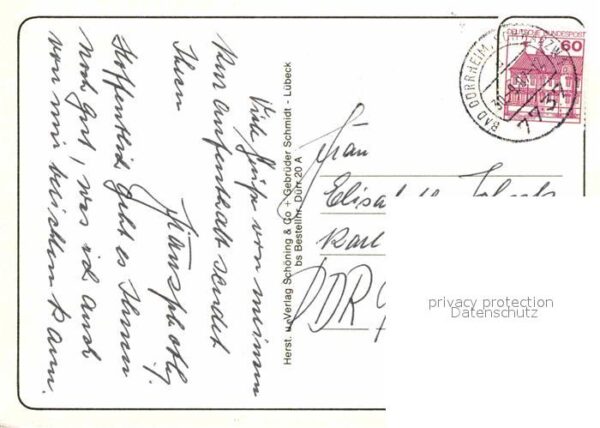 Viele Grüße von meinem
Kuraufenthalt sendet
Ihnen
Hoffentlich geht es Ihnen
noch gut, was ich auch
von mir berichten kann.
Herst. u. Verlag Schöning & Co + Gebrüder Schmidt - Lübeck
bs Bestellnr. Dürr 20 A
DEUTSCHE BUNDESPOST
60
BAD DÜRRHEIM, SCHWARZW
7737
Frau
Karl
DDR
privacy protection
Datenschutz